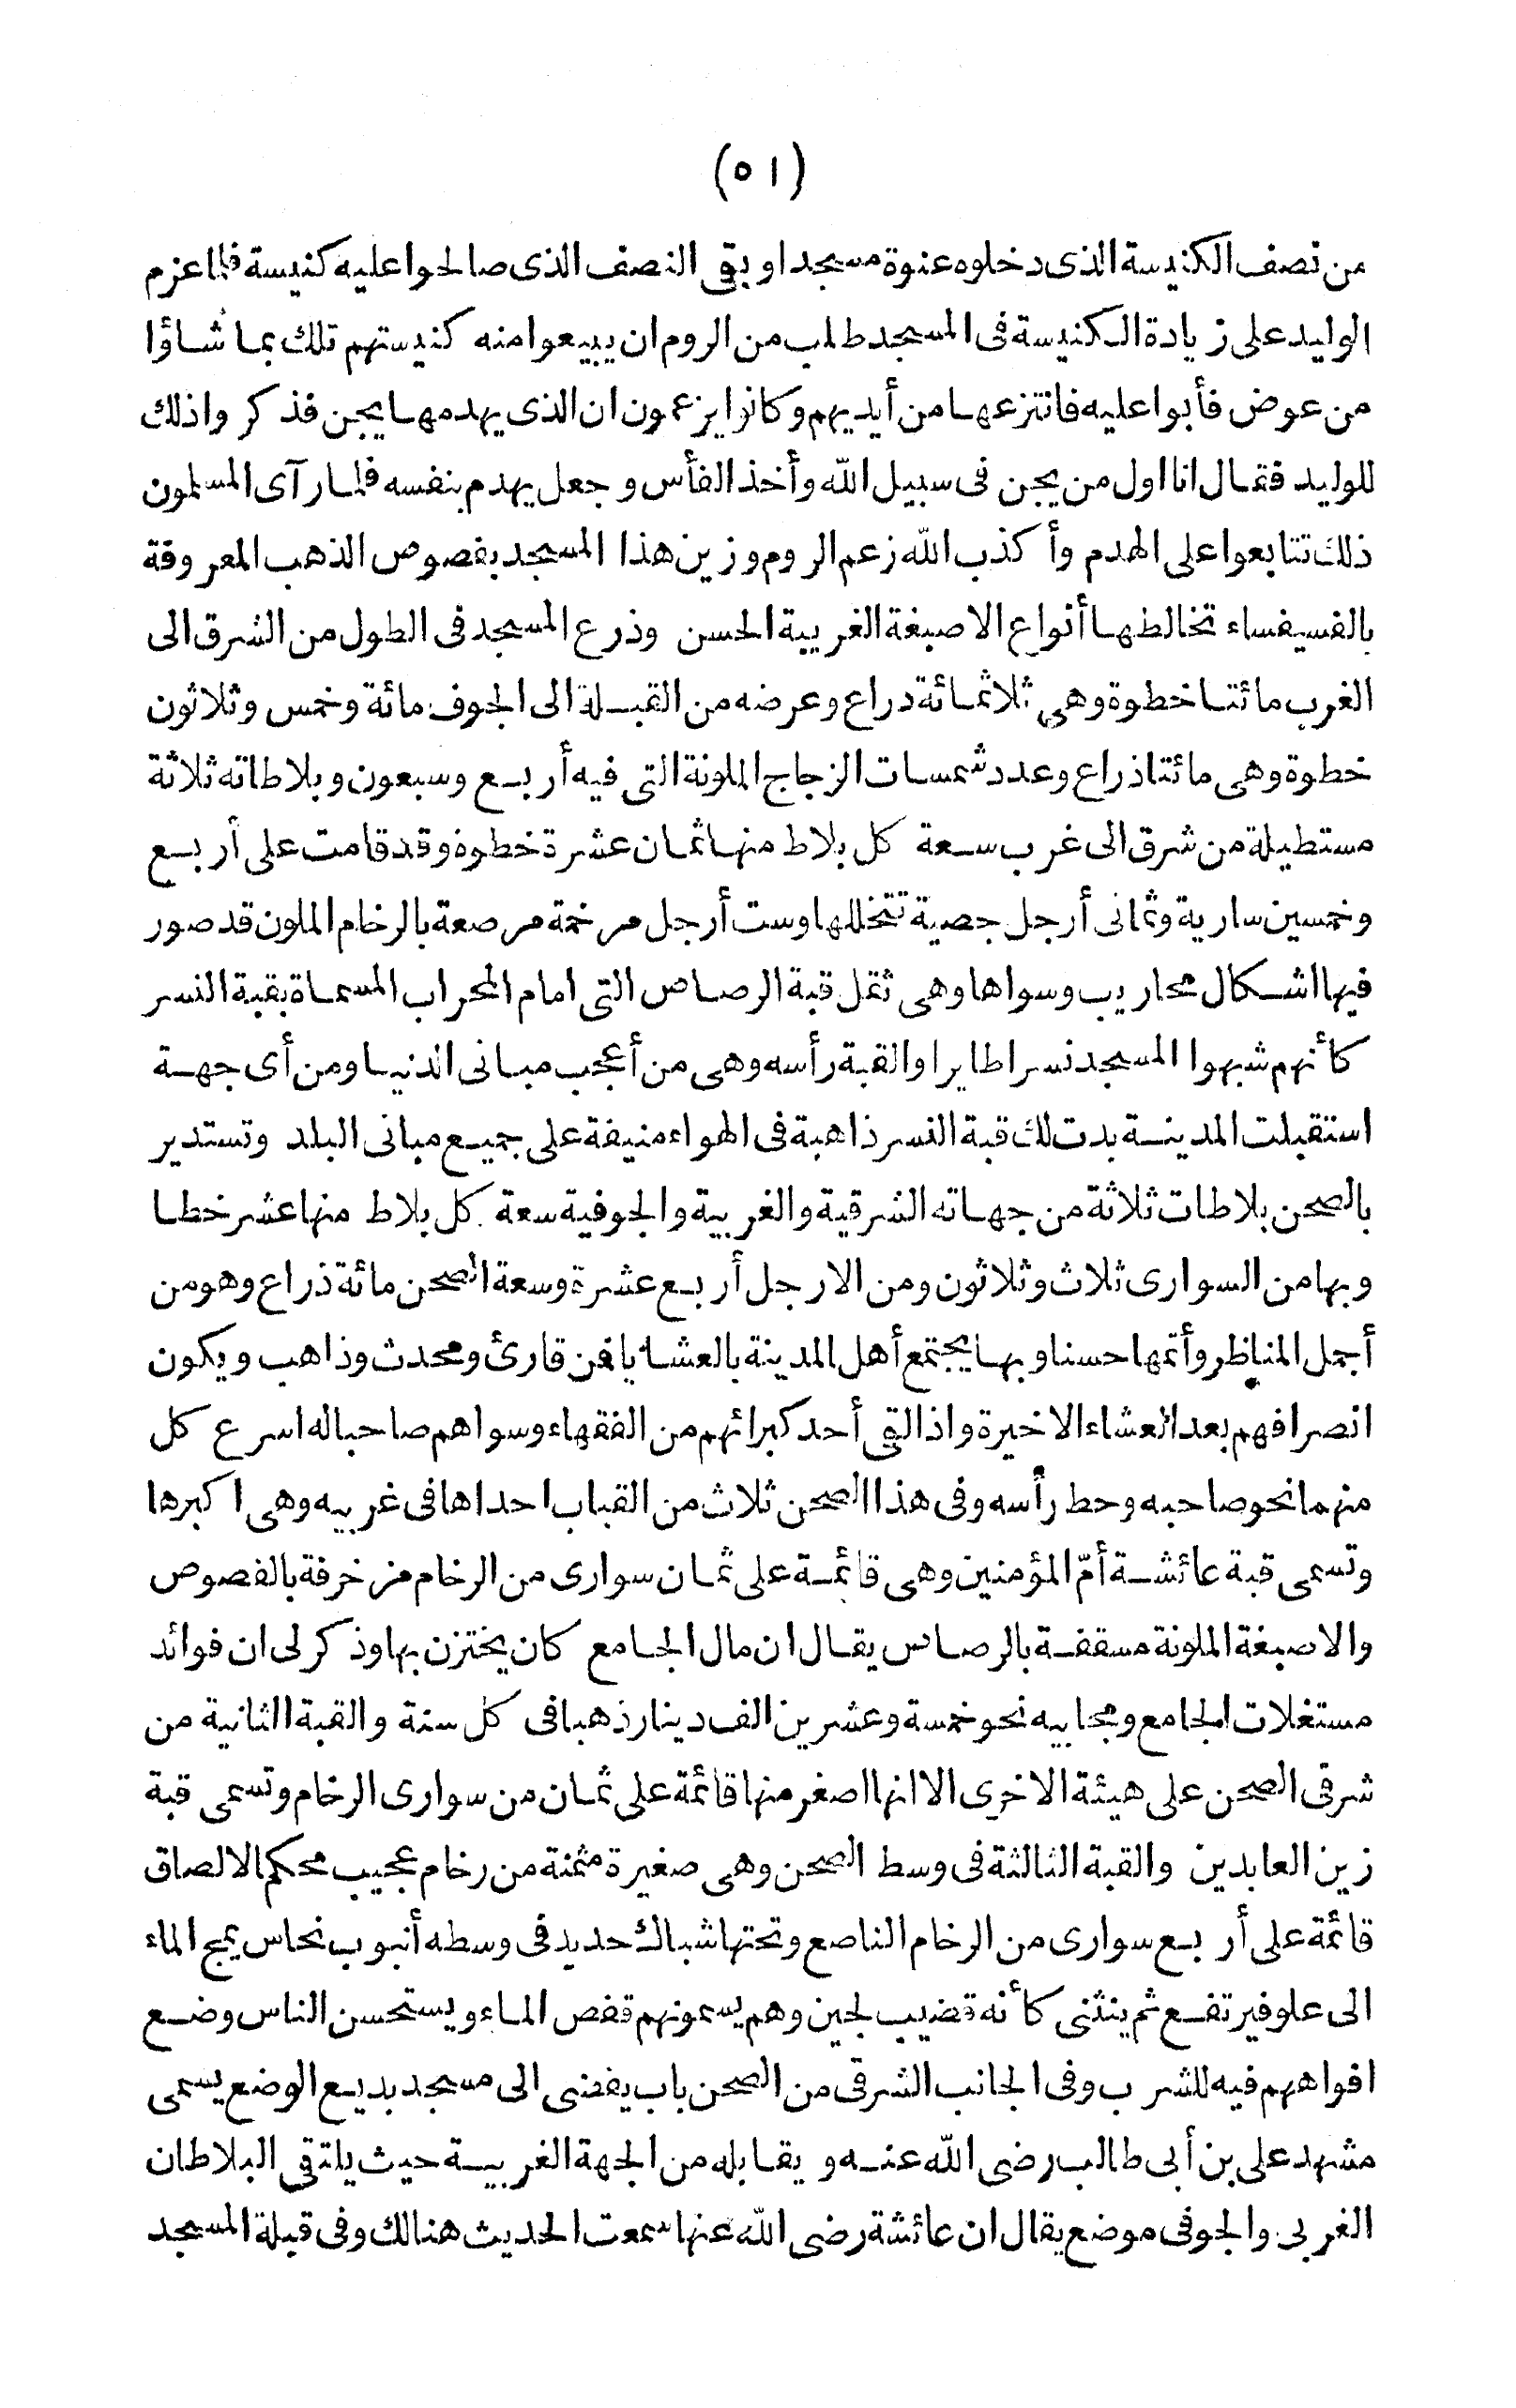 (٥١)
من نصف الكنيسة الذى دخلوه عنوة مسجدا وبقى النصف الذى صالحوا عليه كنيسة فلما عزم
الوليد على زيادة الكنيسة فى المسجد طلب من الروم ان يبيعوا منه كنيستهم تلك بما شاؤا
من عوض فأبوا عليه فانتزعها من أيديهم وكانوا يزعمون ان الذى يهدمها يجن فذكروا ذلك
للوليد فقال انا اول من يجن فى سبيل الله وأخذ الفأس وجعل يهدم بنفسه فلما رآى المسلمون
ذلك تتابعوا على الهدم وأكذب الله زعم الروم وزين هذا المسجد بفصوص الذهب المعروفة
بالفسيفساء تخالطها أنواع الاصبغة الغريبة الحسن وذرع المسجد فى الطول من الشرق الى
الغرب مائتا خطوة وهى ثلاثمائة دراع وعرضه من القبلة الى الجوف مائة وخمس وثلاثون
خطوة وهى مائتا ذراع وعدد شمسات الزجاج الملونة التى فيه أربع وسبعون وبلاطاته ثلاثة
مستطيلة من شرق الى غرب سعة كل بلاط منها ثمان عشرة خطوة وقد قامت على أربع
وخمسين سارية وثمانى أرجل جصية تتخللها وست أرجل مرخمة مرصعة بالرخام الملون قد صور
فيها اشكال محاريب وسواها وهى ثقل قبة الرصاص التى امام المحراب المسماة بقبة النسر
كأنهم شبهوا المسجد نسرا طايرا والقبة رأسه وهى من أعجب مبانى الدنيا ومن أى جهة
استقبلت المدينة بدت لك قبة النسر ذاهبة فى الهواء منيفة على جميع مبانى البلد وتستدير
بالصحن بلاطات ثلاثة من جهاته الشرقية والغربية والجوفية سعة كل بلاط منها عشر خطا
وبها من السوارى ثلاث وثلاثون ومن الارجل أربع عشرة وسعة الصحن مائة ذراع وهو من
أجمل المناظر وأتمها حسنا وبها يجتمع أهل المدينة بالعشايا فمن قارئ ومحدث وذاهب ويكون
انصرافهم بعد العشاء الاخيرة واذا لقى أحد كبرائهم من الفقهاء وسواهم صاحبا له اسرع كل
منهما نحو صاحبه وحط رأسه وفى هذا الصحن ثلاث من القباب احداها فى غربيه وهى اكبرها
وتسمى قبة عائشة أمّ المؤمنين وهى قائمة على ثمان سوارى من الرخام مزخرفة بالفصوص
والاصبغة الملونة مسقفة بالرصاص يقال ان مال الجامع كان يختزن بها وذكر لى ان فوائد
مستغلات الجامع ومجابيه نحو خمسة وعشرين الف دينار ذهبا فى كل سنة والقبة الثانية من
شرقى الصحن على هيئة الاخرى الا انها اصغر منها قائمة على ثمان من سوارى الرخام وتسمى قبة
زين العابدين والقبة الثالثة فى وسط الصحن وهى صغيرة مثمنة من رخام عجيب محكم الالصاق
قائمة على أربع سوارى من الرخام الناصع وتحتها شباك حديد فى وسطه أنبوب نحاس يمج الماء
الى علو فيرتفع ثم ينثنى كأنه قضيب لجين وهم يسمونهم قفص الماء ويستحسن الناس وضع
افواههم فيه للشرب وفى الجانب الشرقى من الصحن باب يفضى الى مسجد بديع الوضع يسمى
مشهد على بن أبى طالب رضى الله عنه ويقابله من الجهة الغربية حيث يلتقى البلاطان
الغربى والجوفى موضع يقال ان عائشة رضى الله عنها سمعت الحديث هنالك وفى قبلة المسجد